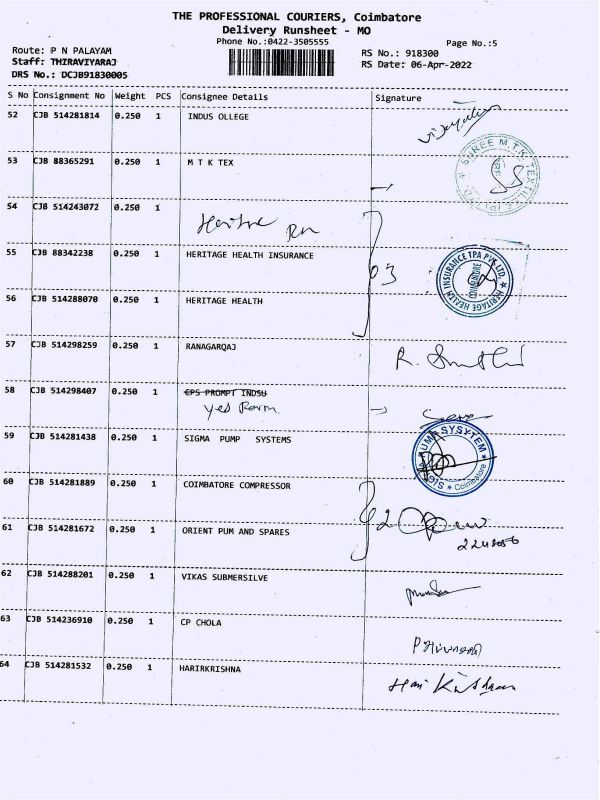 THE PROFESSIONAL COURIERS, Coimbatore
Delivery Runsheet - MO
Phone No.:0422-3505555
Page No.:5
Route: P N PALAYAM
RS No.: 918300
Staff: THIRAVIYARAJ
RS Date: 06-Apr-2022
DRS No.: DCJB91830005
S No Consignment No Weight PCS Consignee Details Signature
52 CJB 514281814 0.250 1 INDUS OLLEGE
53 CJB 88365291 0.250 1 M T K TEX
SHREE M.T.K TEXTILE
54 CJB 514243072 0.250 1
55 CJB 88342238 0.250 1 HERITAGE HEALTH INSURANCE
03
HERITAGE HEALTH INSURANCE TPA PVT. LTD.
COIMBATORE
56 CJB 514288070 0.250 1 HERITAGE HEALTH
57 CJB 514298259 0.250 1 RANAGARQAJ
58 CJB 514298407 0.250 1 CPS PROMPT INDSU
59 CJB 514281438 0.250 1 SIGMA PUMP SYSTEMS
Coimbatore
60 CJB 514281889 0.250 1 COIMBATORE COMPRESSOR
61 CJB 514281672 0.250 1 ORIENT PUM AND SPARES
62 CJB 514288201 0.250 1 VIKAS SUBMERSILVE
63 CJB 514236910 0.250 1 CP CHOLA
64 CJB 514281532 0.250 1 HARIRKRISHNA
Hari Krishnan